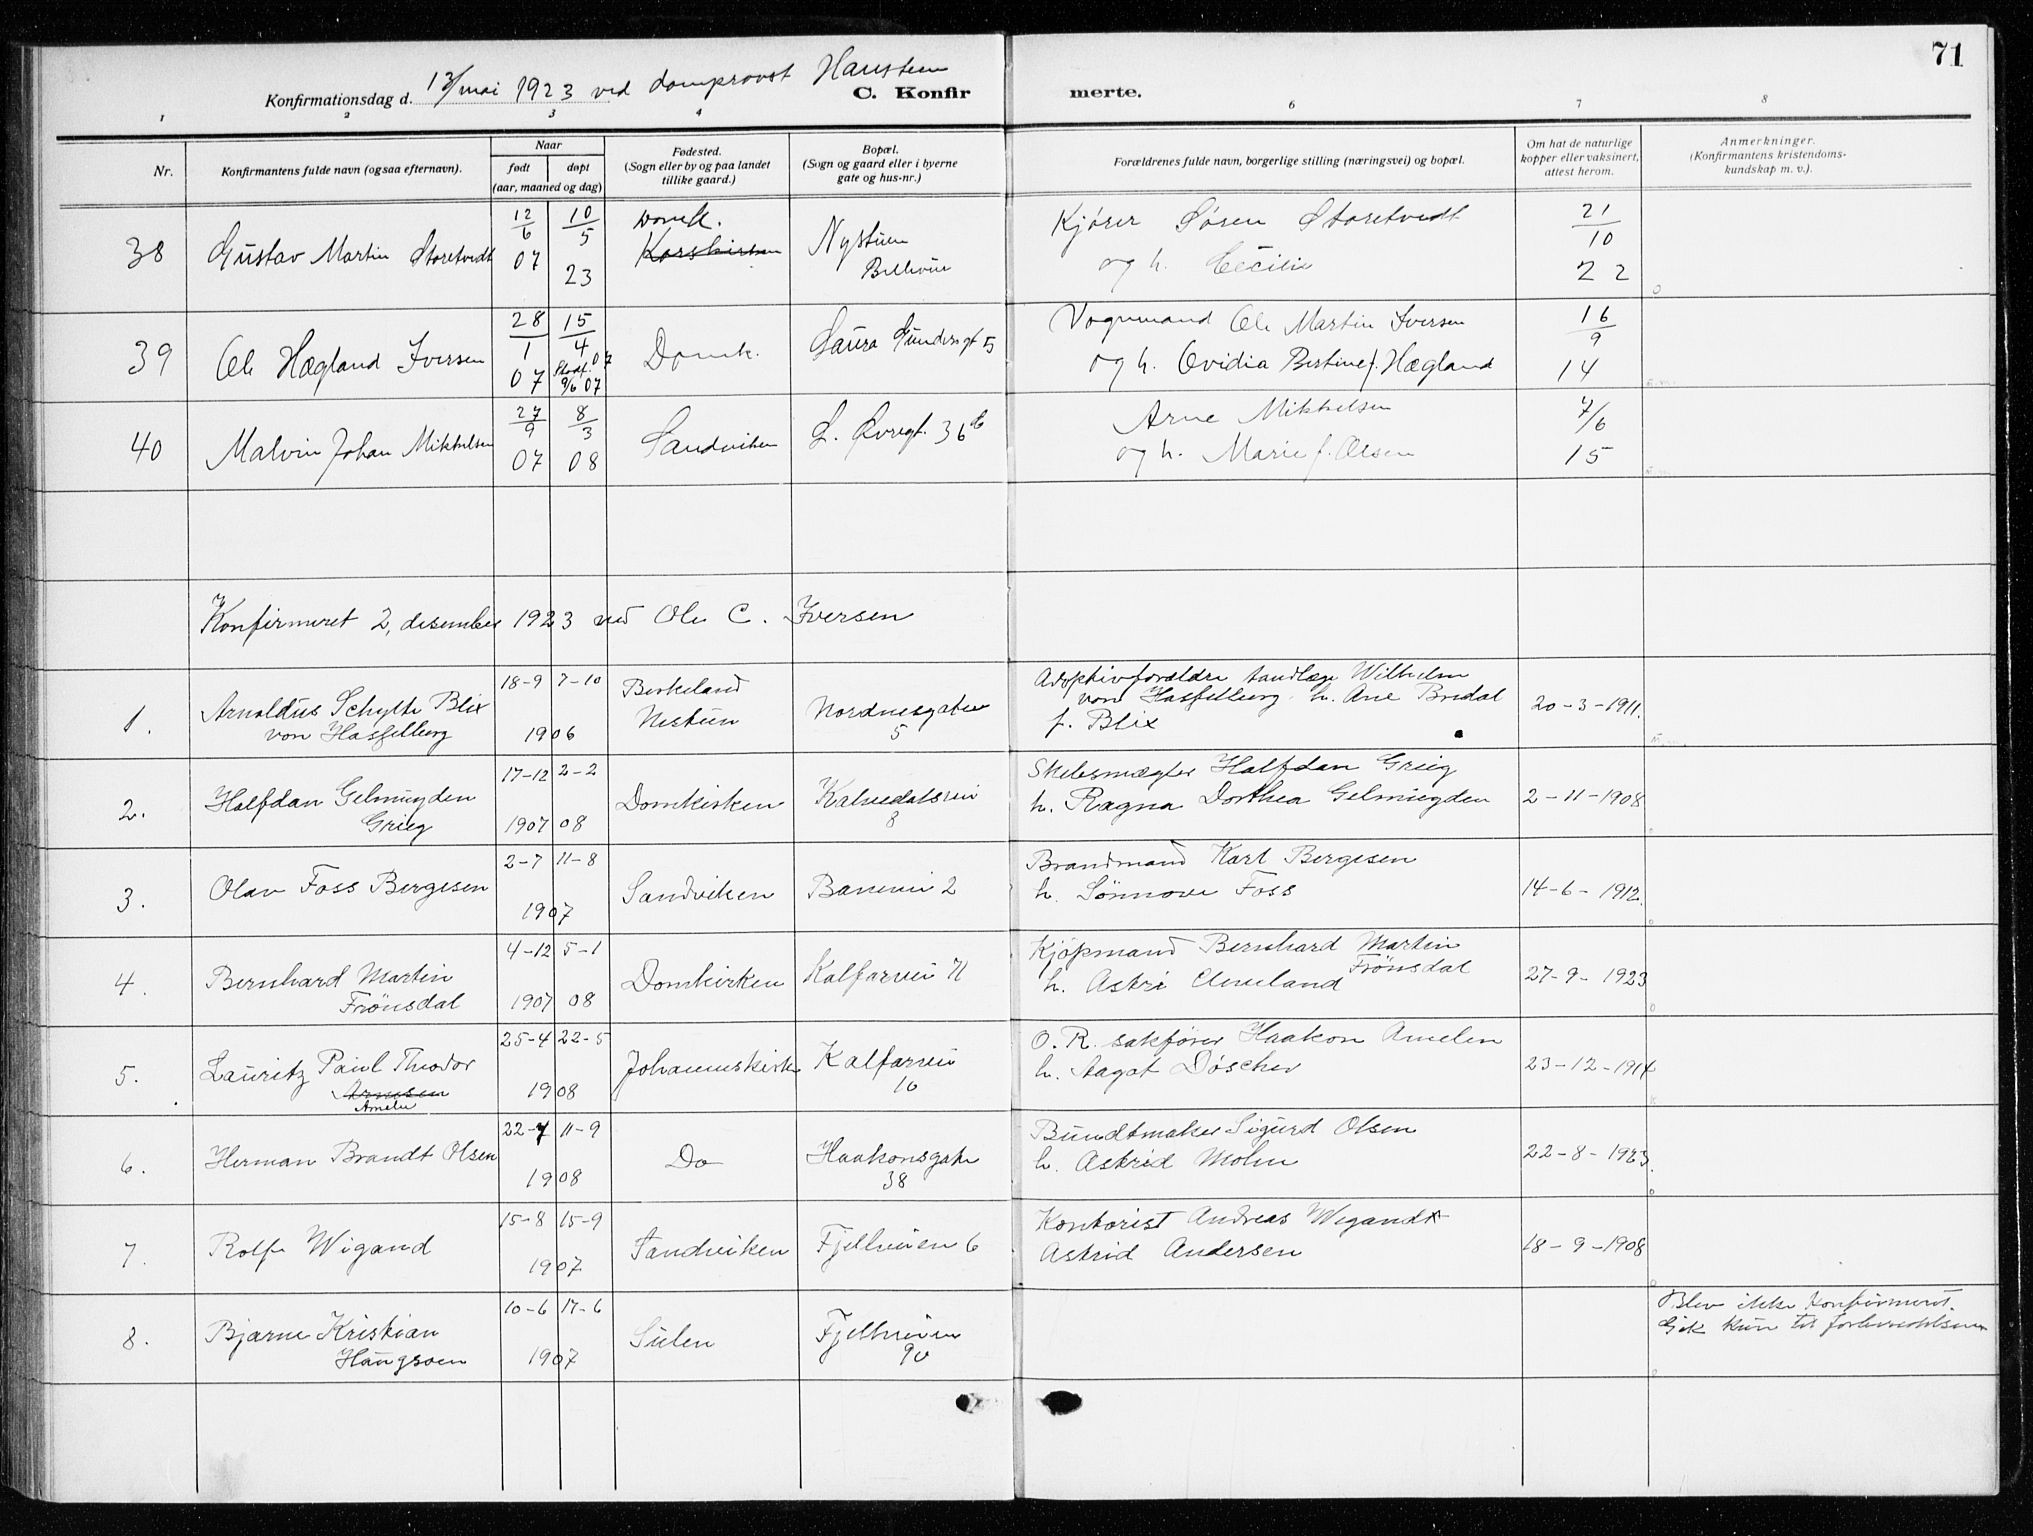 71
Konfirmationsdag d. 13/mai 1923 ved domprovst Hansteen
C. Konfirmerte.
1 2 3 4 6 7 8
Nr.
Konfirmantens fulde navn (ogsaa efternavn).
Naar
født døpt
(aar, maaned og dag)
Fødested.
(Sogn eller by og paa landet
tillike gaard.)
Bopæl.
(Sogn og gaard eller i byerne
gate og hus-nr.)
Forældrenes fulde navn, borgerlige stilling (næringsvei) og bopæl.
Om hat de naturlige
kopper eller vaksinert,
attest herom.
Anmerkninger.
(Konfirmantens kristendoms-
kundskap m. v.).
38 Gustav Martin Storetvedt
12/6 07
10/5 23
Domk.
Korskirken
Nystuen
Bellevue
Kjører Søren Storetvedt
og h. Cecilie
21/10 22
39 Ole Hægland Iversen
28/1 07
15/4 07
Stadf. 9/6 07
Domk.
Laura Gundersgt 5
Vognmand Ole Martin Iversen
og h. Ovidia Bertine f. Hægland
16/9 14
40 Malvin Johan Mikkelsen
27/9 07
8/3 08
Sandviken
L. Øvregt. 36 b
Arne Mikkelsen
og h. Marie f. Olsen
7/6 15
Konfirmeret 2, desember 1923 ved Ole C. Iversen
1. Arnoldus Schytte Blix
von Hasselberg
18-9 7-10
1906
Birkeland
Nestun
Nordnesgaten
5
Adoptivforældre tandlæge Wilhelm
von Hasselberg. h. Ane Bredal
f. Blix
20-3-1911.
2. Halfdan Gelmuyden
Grieg
17-12 2-2
1907 08
Domkirken
Kalvedalsvei
8
Skibsmægler Halfdan Grieg
h. Ragna Dorthea Gelmuyden
2-11-1908
3. Olav Foss Bergesen
2-7 11-8
1907
Sandviken
Banevei 2
Brandmand Karl Bergesen
h. Sønnove Foss
14-6-1912.
4. Bernhard Martin
Frønsdal
4-12 5-1
1907 08
Domkirken
Kalfarvei 71
Kjøpmand Bernhard Martin
Frønsdal
h. Astri Cleveland
27-9-1923
5. Lauritz Paul Theodor
Arnesen
Ameln
25-4 22-5
1908
Johanneskirke
Kalfarvei
10
O.R. sakfører Haakon Amelen
h. Aagot Døscher
23-12-1914
6. Herman Brandt Olsen
22-7 11-9
1908
Do
Haakonsgate
38
Bundtmaker Sigurd Olsen
h. Astrid Mohn
22-8-1923.
7. Rolf Wigand
15-8 15-9
1907
Sandviken
Fjellveien 6
Kontorist Andreas Wegandt
Astrid Andersen
18-9-1908
8. Bjarne Kristian
Haugsoen
10-6 17-6
1907
Sulen
Fjellveien
90
Blev ikke konfirmert.
Gik kun til forberedelsen